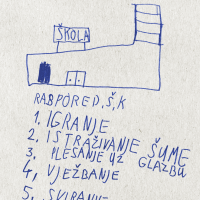 ŠKOLA
RABPORED,Š,K
1. IGRANJE
2. ISTRAŽIVANJE ŠUME
3, PLESANJE UZ GLAZBU
4, VJEŽBANJE
5, SVIRANJE